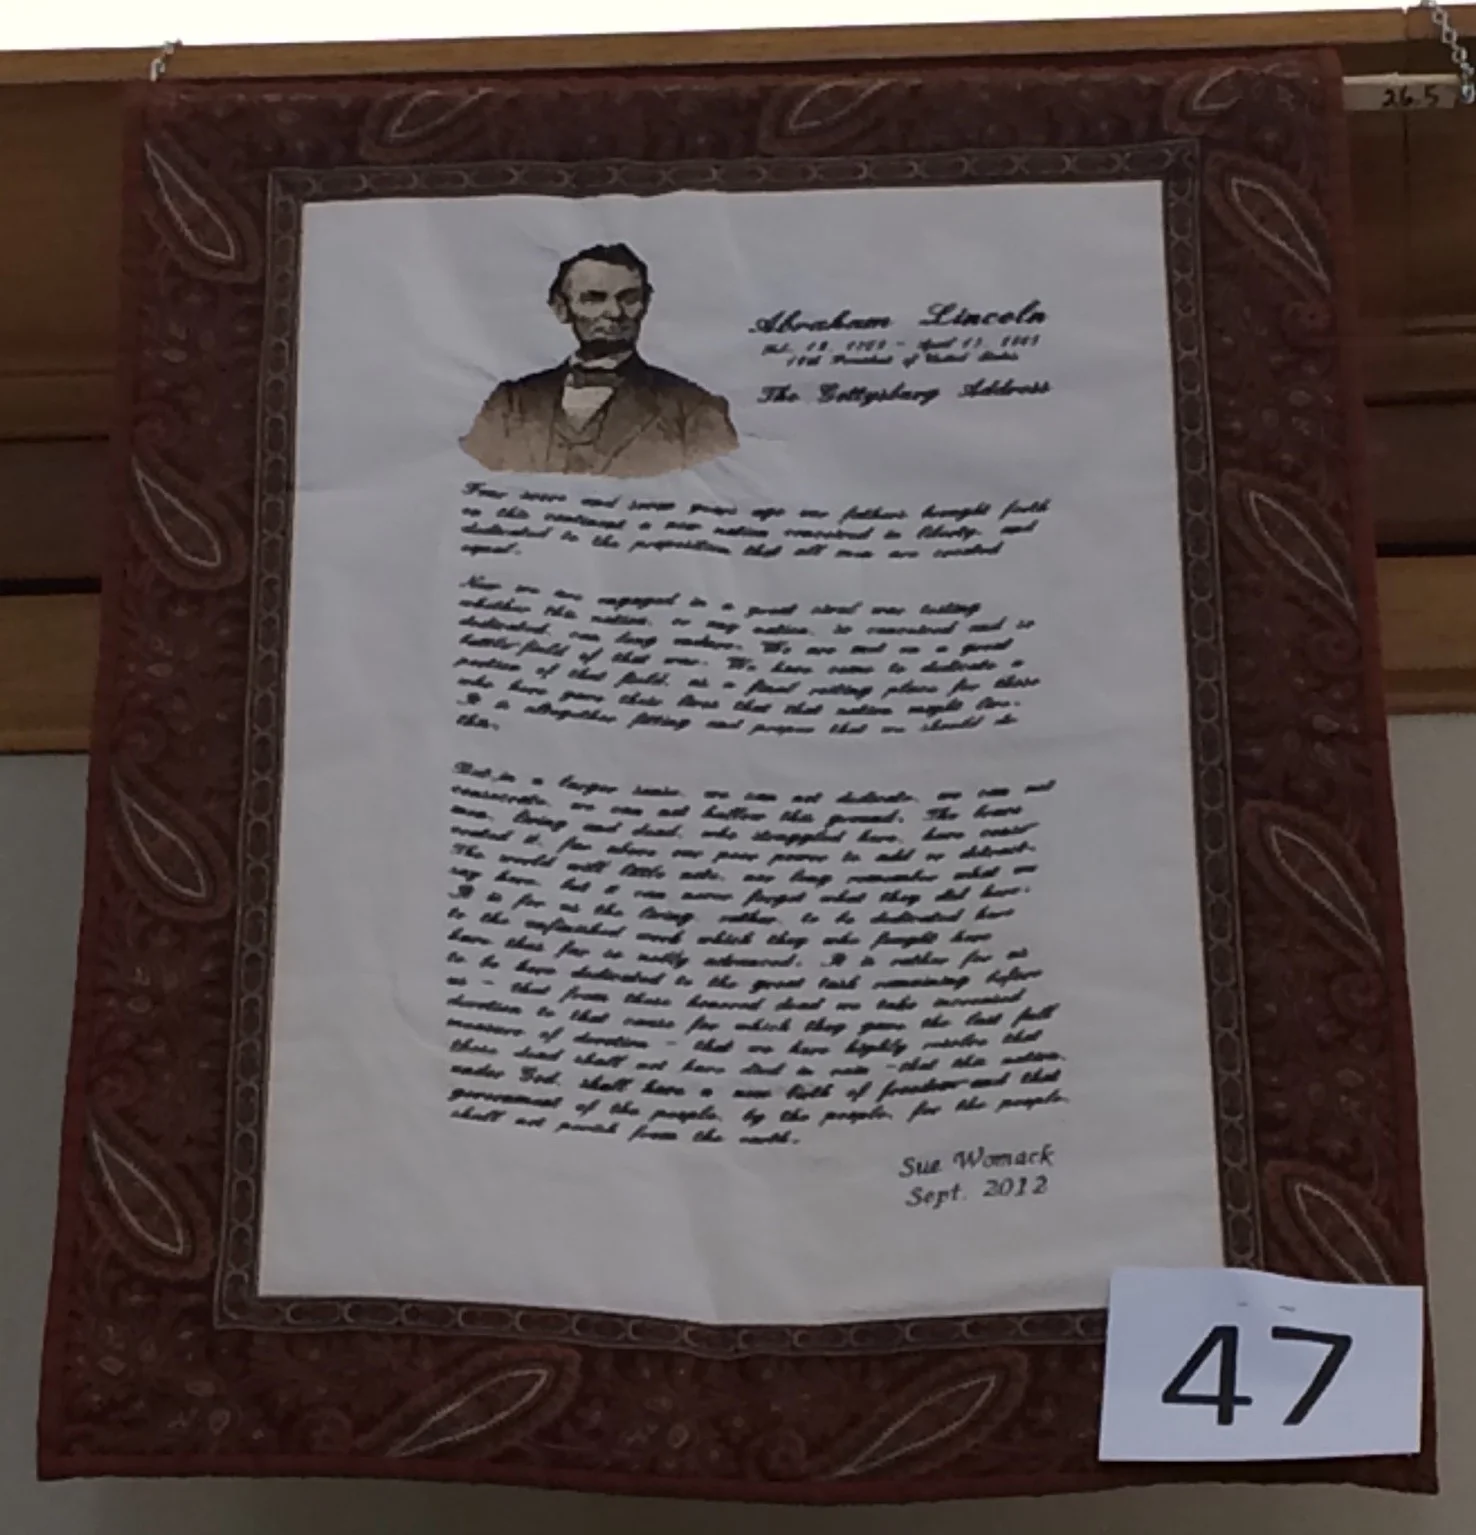 26.5
Abraham Lincoln
16th President of United States
The Gettysburg Address
Four score and seven years ago our fathers brought forth
on this continent a new nation conceived in liberty, and
dedicated to the proposition that all men are created
equal.
Now we are engaged in a great civil war testing
whether this nation, or any nation, so conceived and so
dedicated, can long endure. We are met on a great
battle field of that war. We have come to dedicate a
portion of that field, as a final resting place for those
who here gave their lives that that nation might live.
It is altogether fitting and proper that we should do
this.
But, in a larger sense, we can not dedicate, we can not
consecrate, we can not hallow this ground. The brave
men, living and dead, who struggled here, have conse
crated it, far above our poor power to add or detract.
The world will little note, nor long remember what we
say here, but it can never forget what they did here.
It is for us the living, rather, to be dedicated here
to the unfinished work which they who fought here
have thus far so nobly advanced. It is rather for us
to be here dedicated to the great task remaining before
us - that from these honored dead we take increased
devotion to that cause for which they gave the last full
measure of devotion - that we here highly resolve that
these dead shall not have died in vain -that this nation,
under God, shall have a new birth of freedom-and that
government of the people, by the people, for the people,
shall not perish from the earth.
Sue Womack
Sept. 2012
47